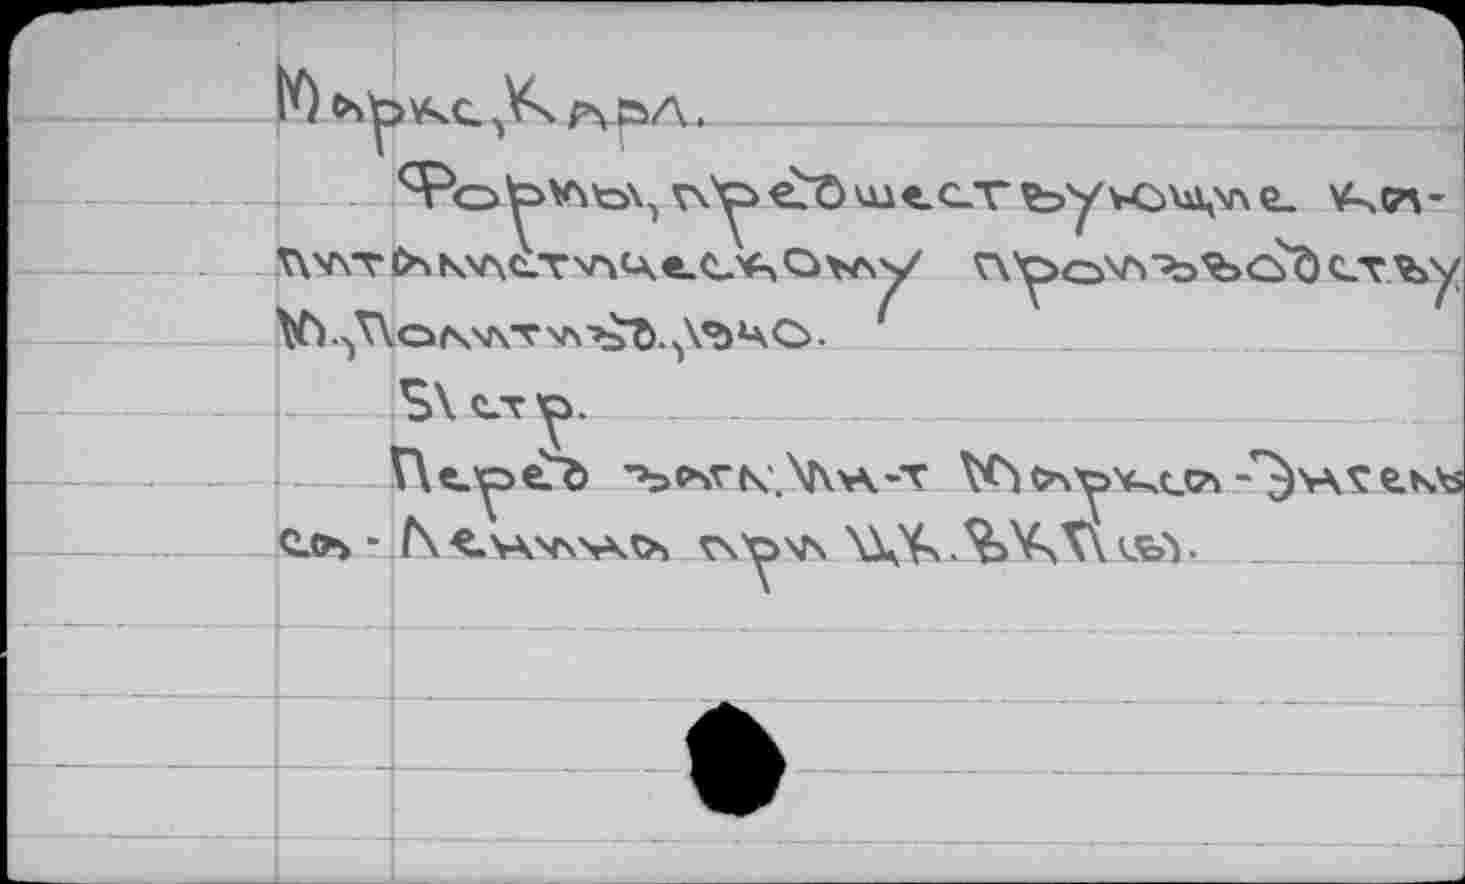 Маркс, Карл.
Формы, предшествующие ка-
питалистическому производству,
М., Политизд., 1940.
51 стр.
Перед загл.: Ин-т Маркса-Энгель
са-Ленина при ЦК ВКП(б).